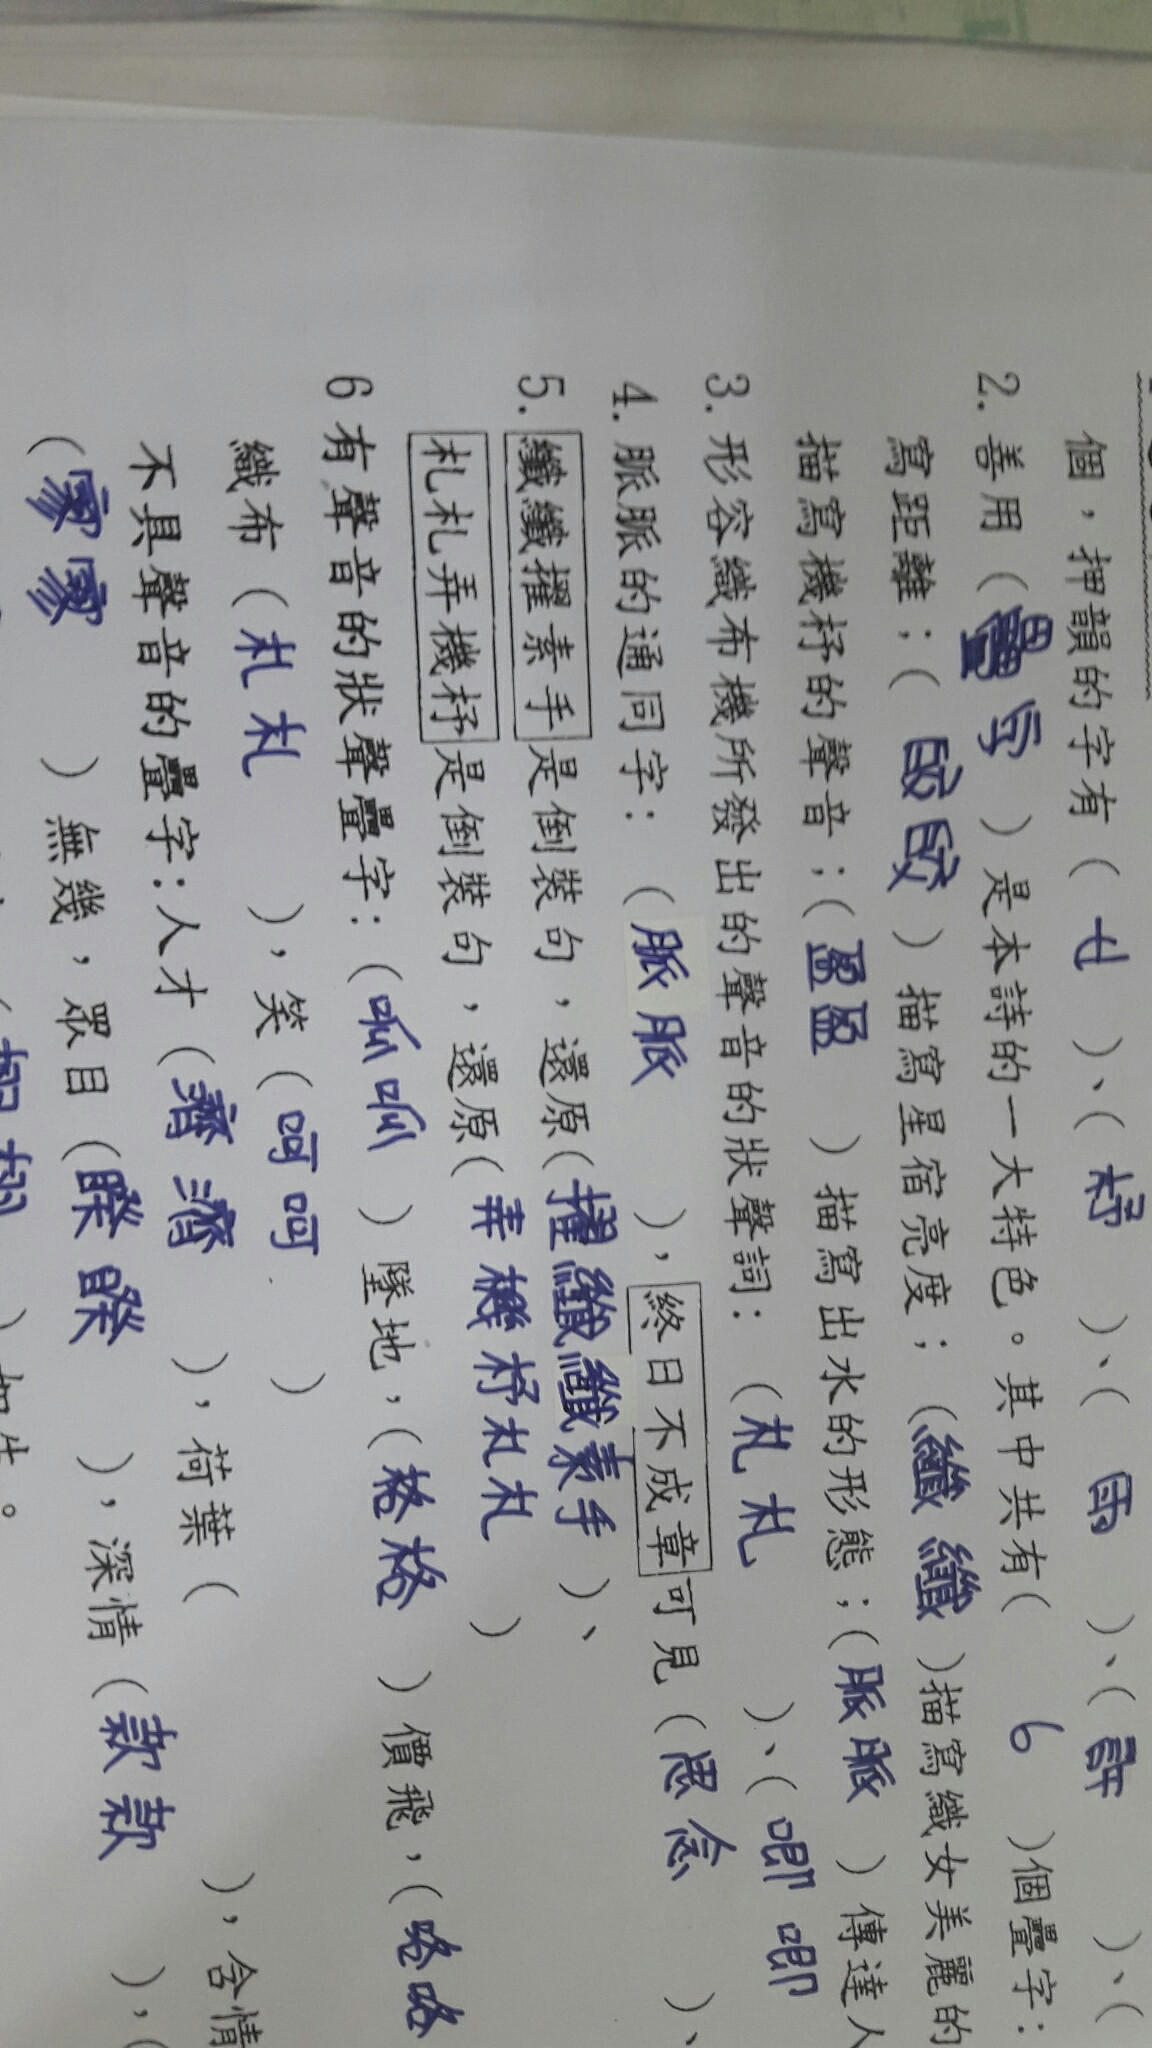 個，押韻的字有（ 女 ）、（ 杼 ）、（ 雨 ）、（ 許 ）、（
2. 善用（疊字）是本詩的一大特色。其中共有( 6 )個疊字：
寫距離；（ ）描寫星宿亮度；（纖纖）描寫織女美麗的
描寫機杼的聲音；（盈盈）描寫出水的形態；（脈脈）傳達人
3. 形容織布機所發出的聲音的狀聲詞：（札札）、（唧唧
4. 脈脈的通同字：（脈脈），終日不成章可見（思念）、
5. 纖纖擢素手是倒裝句，還原（擢纖纖素手）、
札札弄機杼是倒裝句，還原（弄機杼札札）
6 有聲音的狀聲疊字：（呱呱）墜地，（格格）價飛，（咯咯
織布（札札），笑（呵呵）
不具聲音的疊字：人才（濟濟），荷葉（ ），含情
（寥寥）無幾，眾目（睽睽），深情（款款），（
（栩栩）如生。